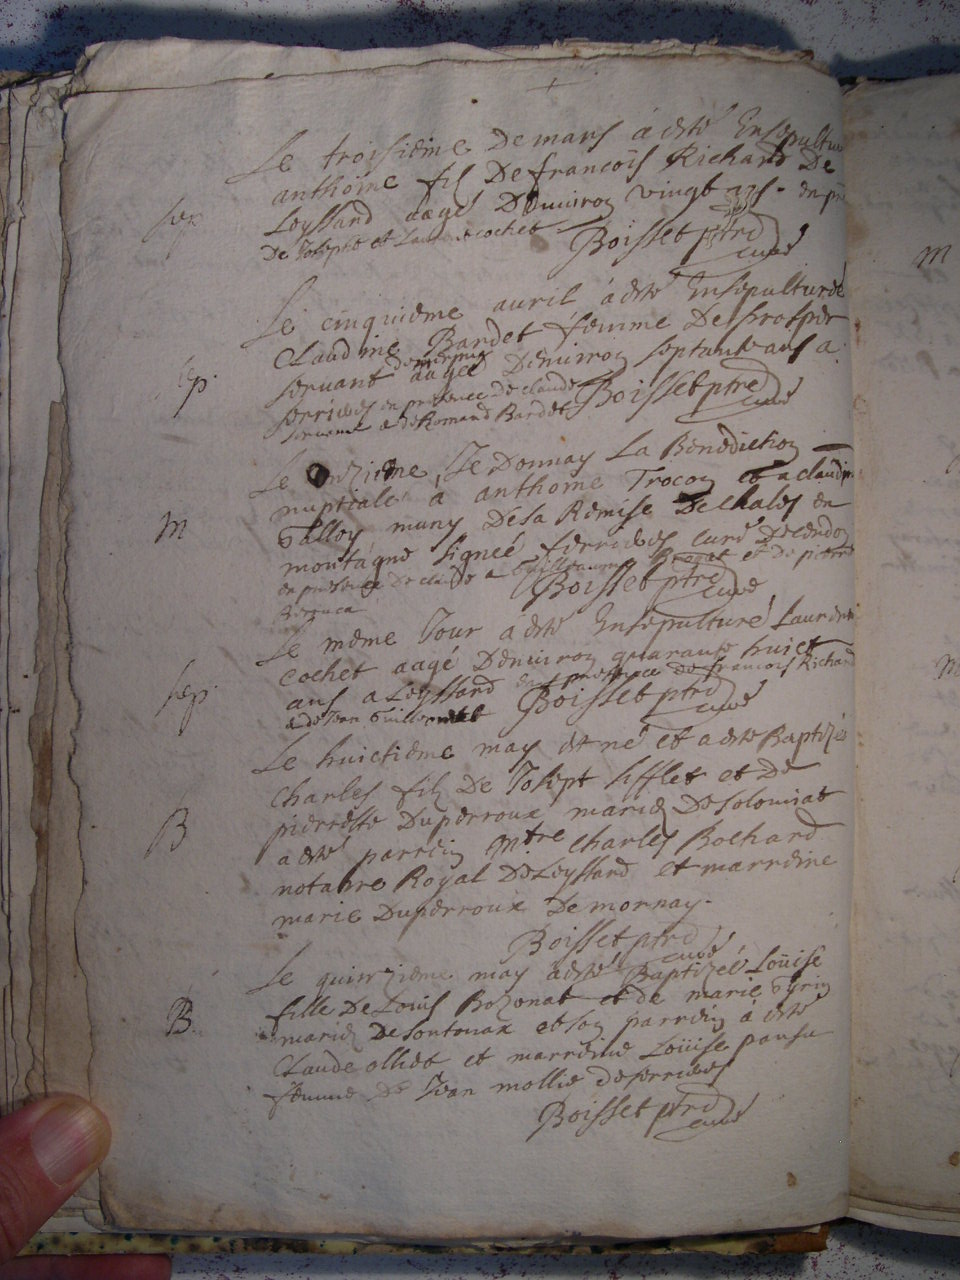 Le troisieme De mars á esté Ensepultu
anthoine fil De francoïs Richard De
sep Leyssard aagé Denuiron vingt ans. en p
De Joseph et Laurent cochet Boisset ptre curé
Le cinquieme auril á esté Ensepulturée
Claudine Bardet femme De prosper
sep. seruant aagée Denuiron septante ans a
serrieres en presence de claude Boisset ptre curé
seruant et de Romand Bardet
Le onzieme, Je Donnay La Benediction
nuptiale a anthoine Trocon et a claudine
M muny De sa Remise De Chales en
montagne signeé ferrieres curé De
en presence De claude et de pierre
Boisset ptre curé
Le même Jour á esté Ensepulturé Laurent
cochet aagé Denuiron quarante huict
sep. ans a Leyssard en presence de francois Richard
et de Jean Guillermet Boisset ptre curé
Le huictieme may est né et a esté Baptizé
Charles fil De Josept sifflet et De
B pierrette Duperroux mariez De Solomiat
a esté parrein Mtre Charles Bochard
notaire Royal De Leyssard et marreine
marie Duperroux De mornay.
Boisset ptre curé
Le quinzieme may á esté Baptizeé Loüise
fille De Loüis Bozonat et de marie
B. mariez De sontonax et son parrein á esté
Claude olliet et marreine Loüise pansu
femme De Jean mollie de serrieres
Boisset ptre curé
M